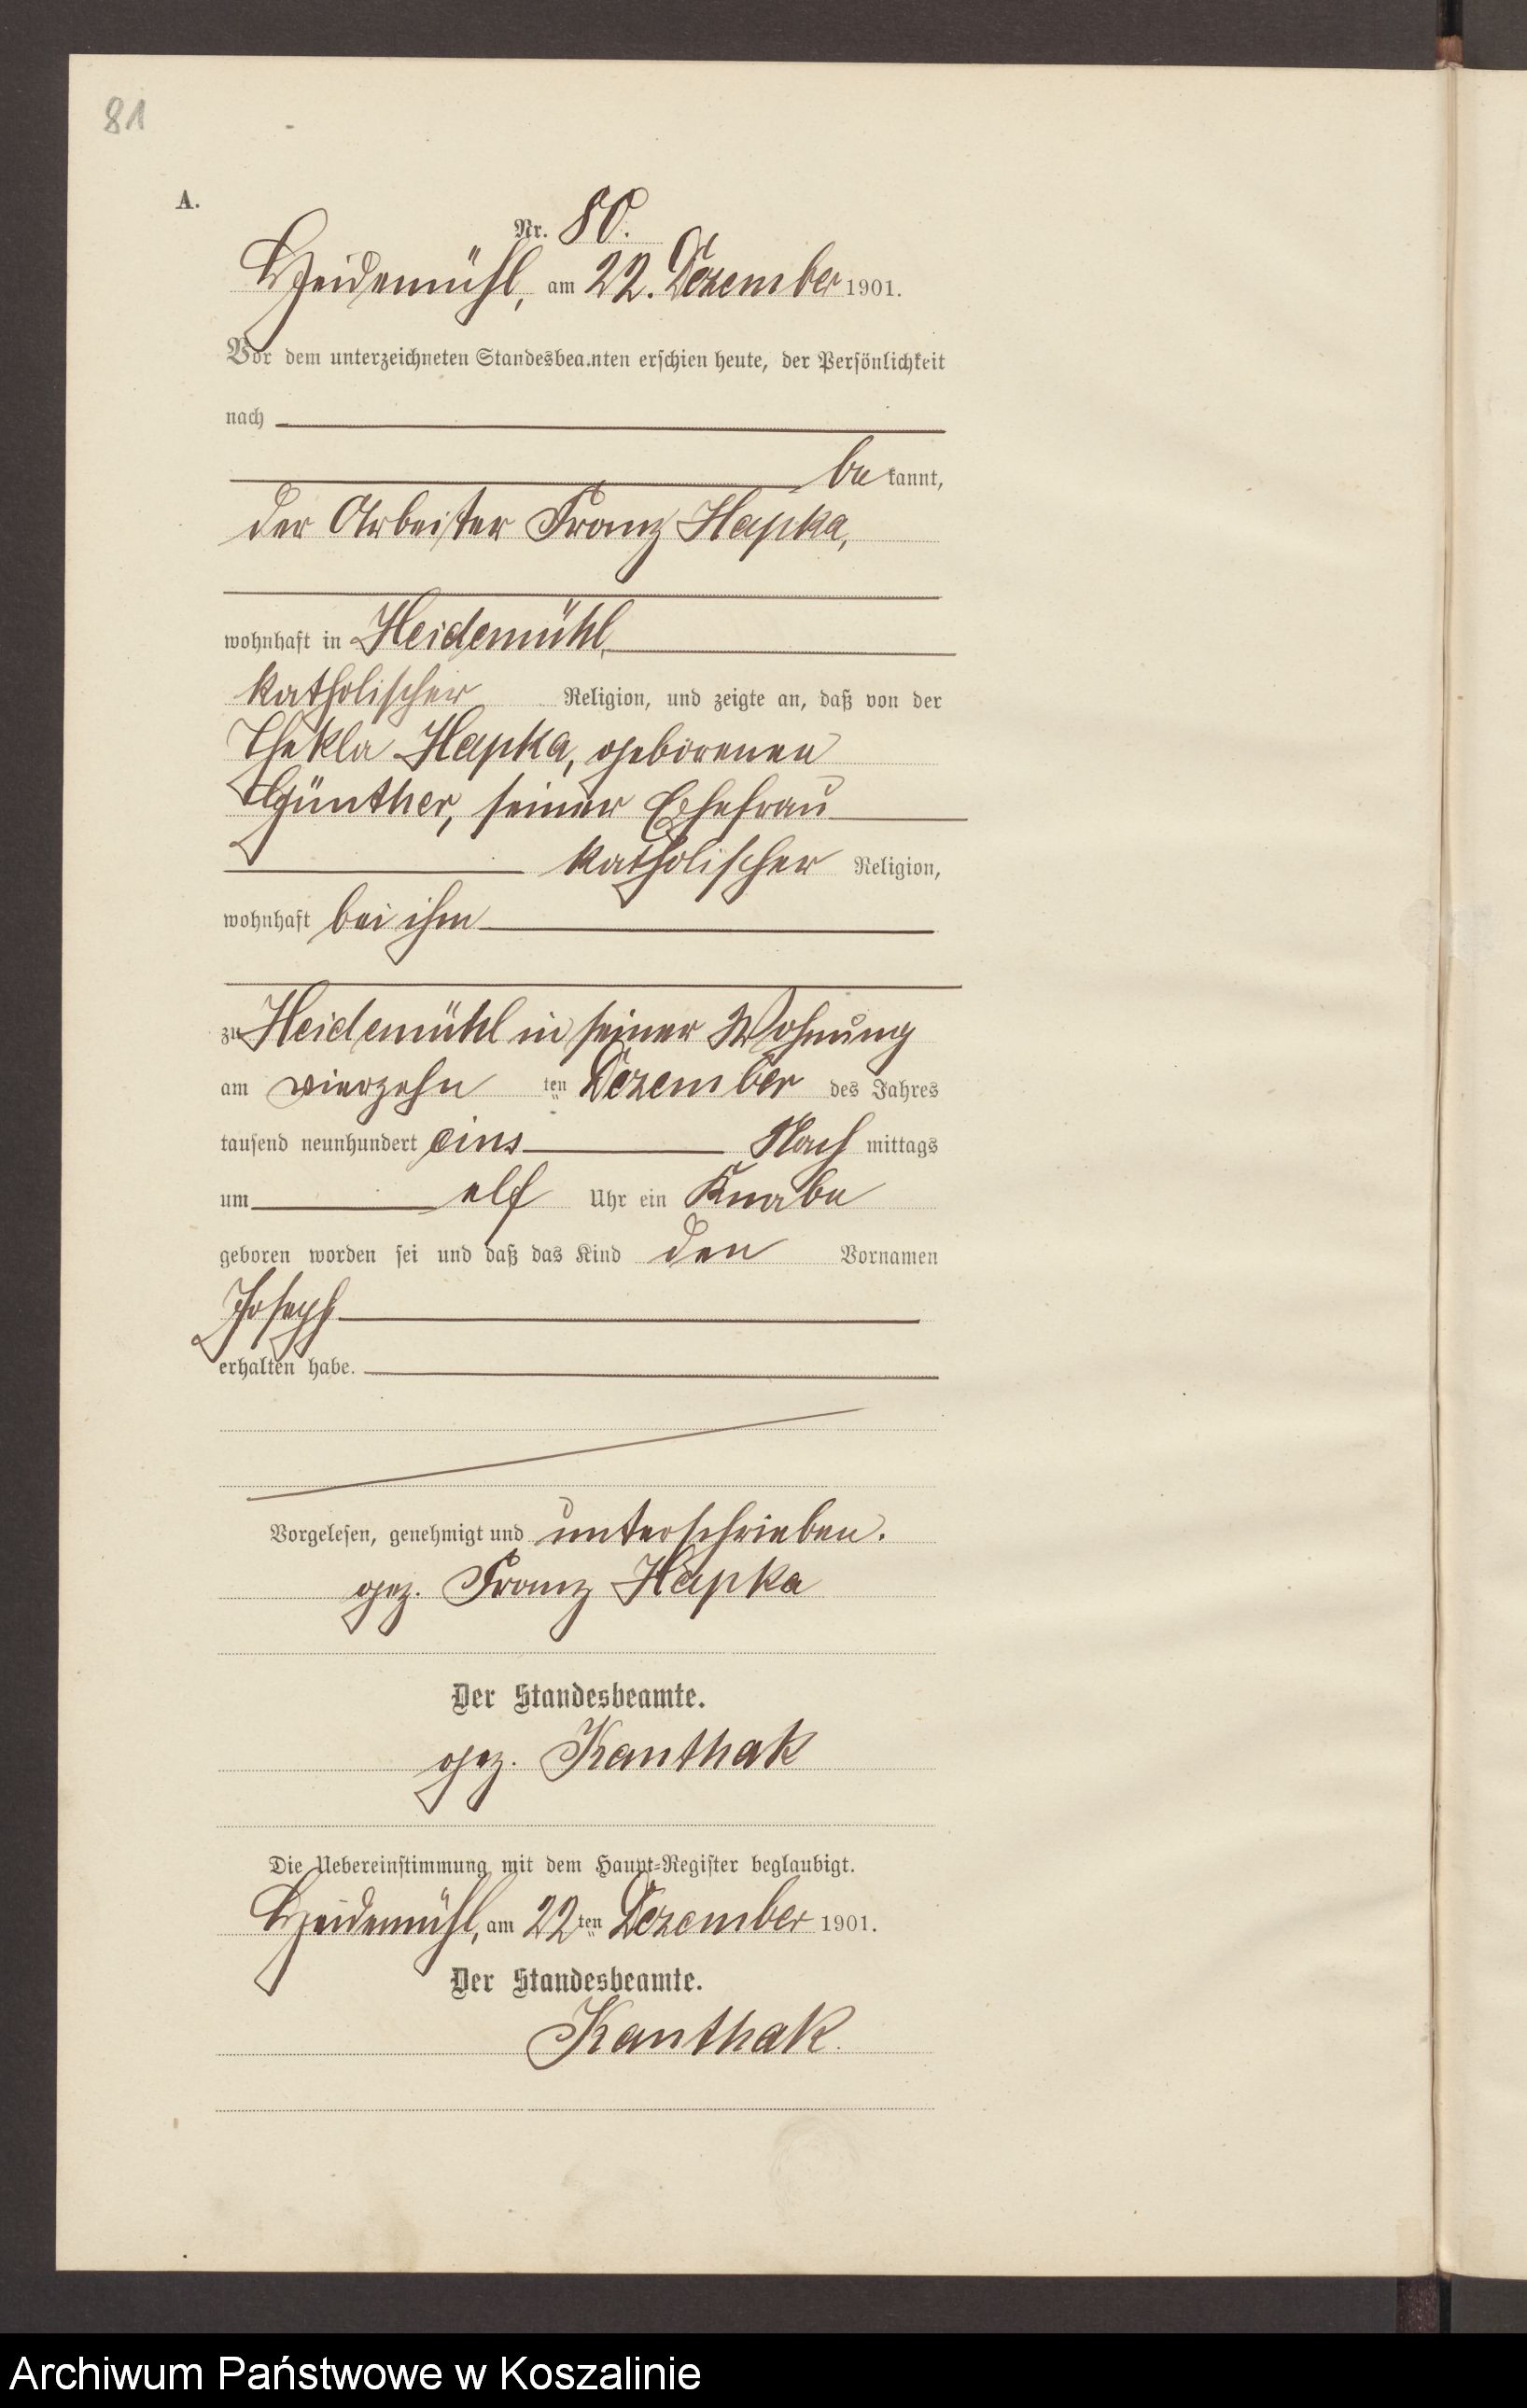 81
A.
Nr. 80.
Heidemühl, am 22. Dezember 1901.
Vor dem unterzeichneten Standesbeamten erschien heute, der Persönlichkeit
nach
be kannt,
der Arbeiter Franz Hapka,
wohnhaft in Heidemühl,
katholischer Religion, und zeigte an, daß von der
Thekla Hapka, geborenen
Günther, seiner Ehefrau
katholischer Religion,
wohnhaft bei ihm
zu Heidemühl in seiner Wohnung
am vierzehn ten Dezember des Jahres
tausend neunhundert eins Nach mittags
um elf Uhr ein Knabe
geboren worden sei und daß das Kind den Vornamen
Joseph
erhalten habe.
Vorgelesen, genehmigt und unterschrieben.
gez. Franz Hapka
Der Standesbeamte.
gez. Kanthak
Die Uebereinstimmung mit dem Haupt-Register beglaubigt.
Heidemühl, am 22ten Dezember 1901.
Der Standesbeamte.
Kanthak.
Archiwum Państwowe w Koszalinie